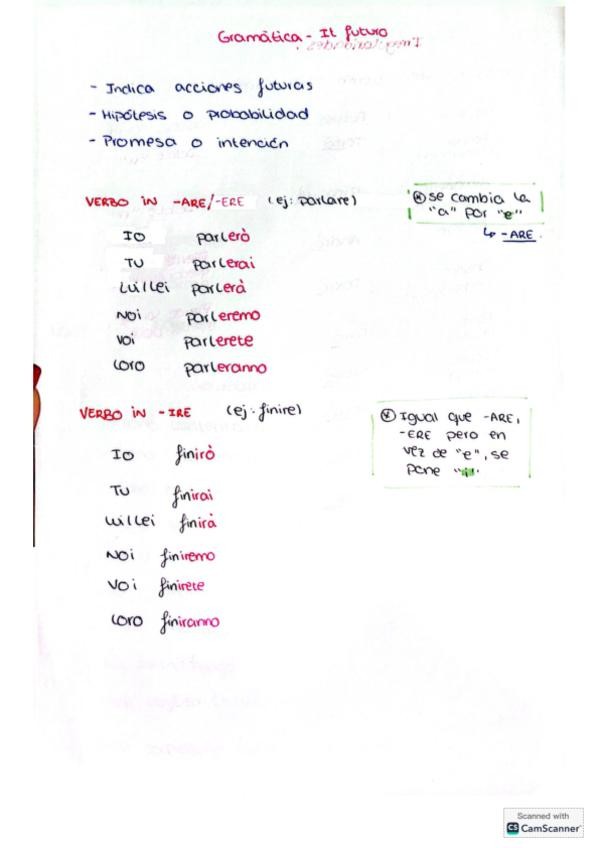 Gramática - Il futuro
- Indica acciones futuras
- Hipólesis o probabilidad
- Promesa o intención
VERBO IN -ARE/-ERE (ej: parlare)
⊛ se cambia la
"a" por "e"
↳ -ARE.
IO parlerò
TU parlerai
Lui/Lei parlerà
NOI parleremo
VOI parlerete
LORO parleranno
VERBO IN -IRE (ej: finire)
⊛ Igual que -ARE,
-ERE pero en
vez de "e", se
pone "i".
IO finirò
TU finirai
Lui/Lei finirà
NOI finiremo
VOI finirete
LORO finiranno
Scanned with
CS CamScanner